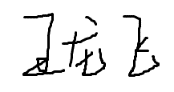 王龙飞